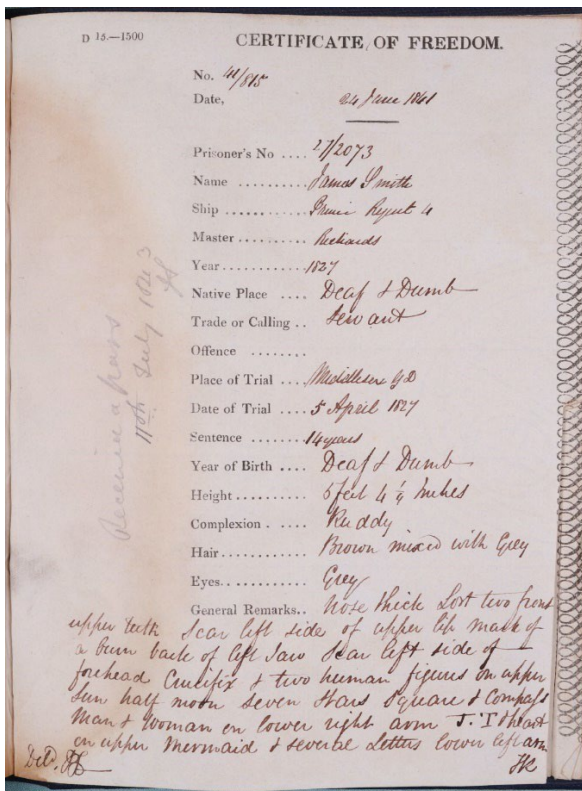 D 15.—1500
CERTIFICATE OF FREEDOM.
No. 41/815
Date, 24 June 1841
Prisoner's No .... 27/2073
Name .......... James Smith
Ship ............ Regent 4
Master.......... Richards
Year............. 1827
Native Place .... Deaf & Dumb
Trade or Calling .. Servant
Offence ........
Place of Trial .... Middlesex GD
Date of Trial .... 5 April 1827
Sentence ........ 14 years
Year of Birth .... Deaf & Dumb
Height .......... 5 feet 4 1/4 Inches
Complexion . ..... Ruddy
Hair............. Brown mixed with Grey
Eyes............. Grey
General Remarks.. Nose thick Lost two front
upper teeth Scar left side of upper lip mark of
a burn back of left Jaw Scar left side of
forehead Crucifix & two human figures on upper
Sun half moon Seven Stars Square & Compass
Man & Woman on lower right arm J.T & heart
on upper Mermaid & several Letters lower left arm
Received a pass
11th July 1843